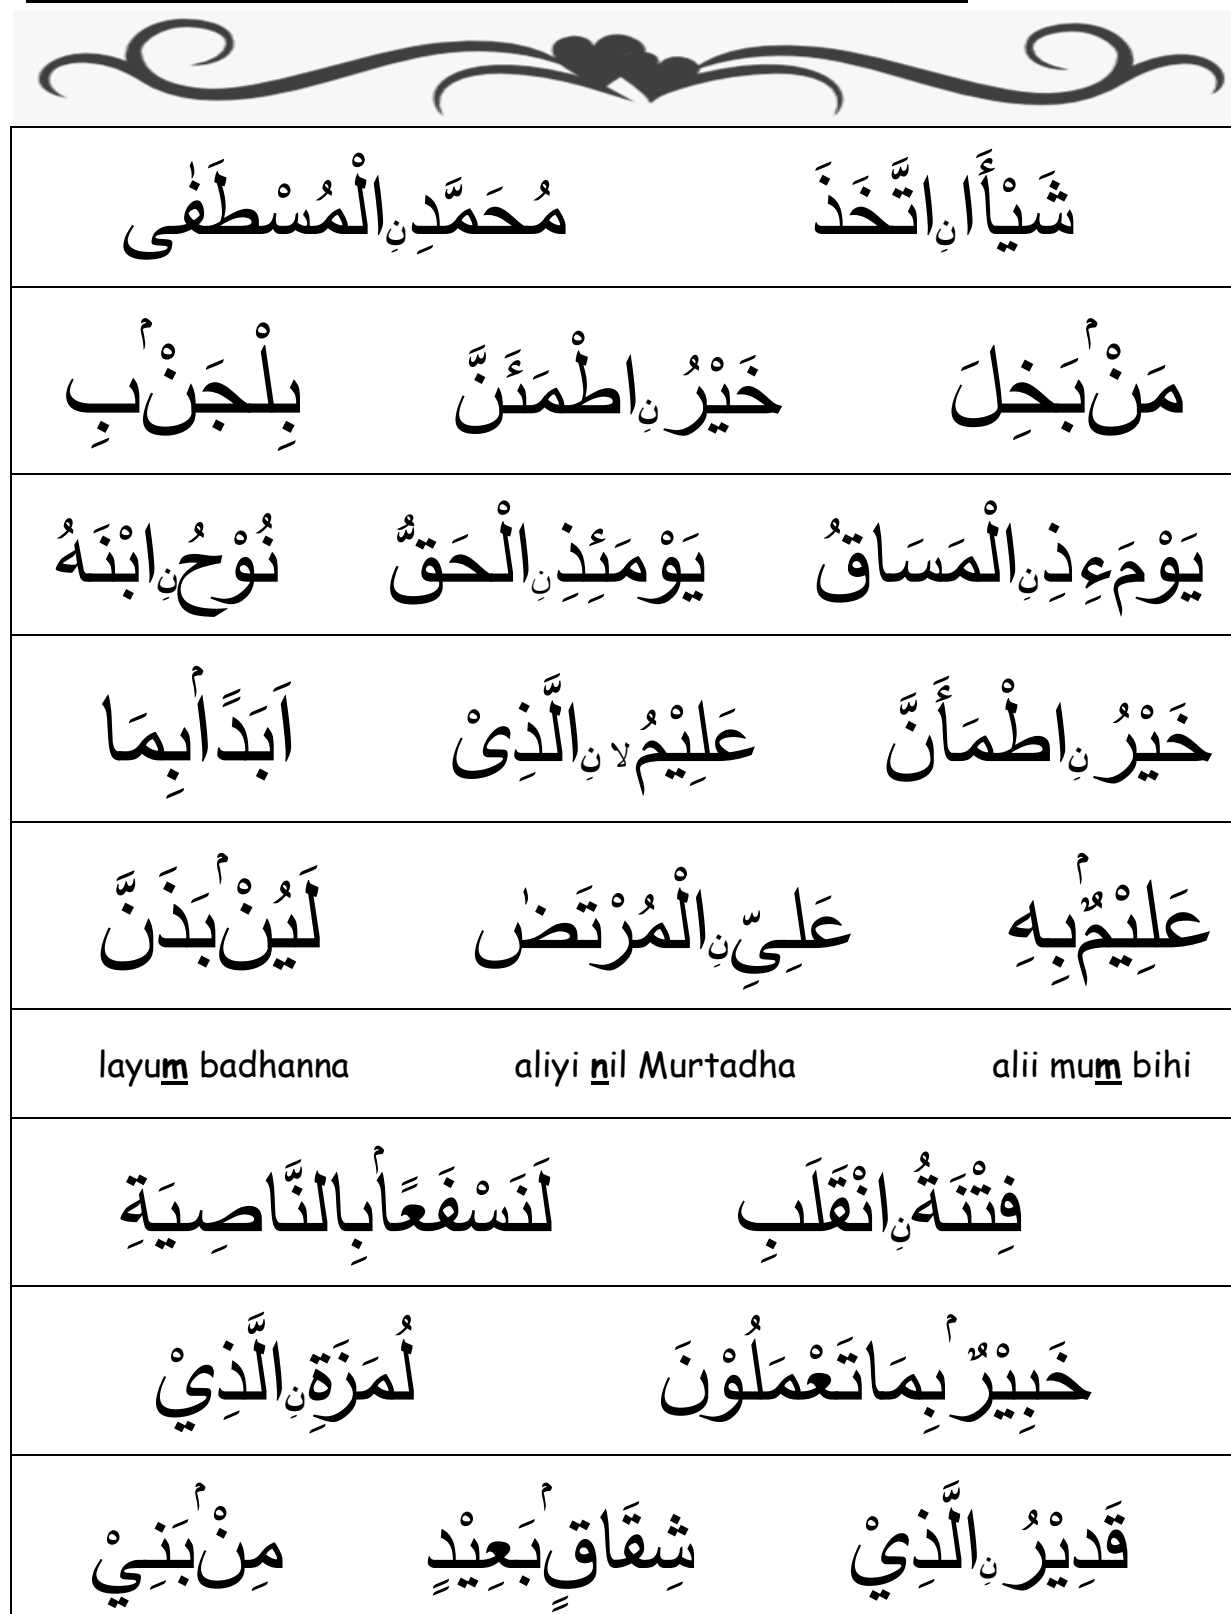 شَيْأَا نِ اتَّخَذَ مُحَمَّدِ نِ الْمُسْطَفٰى
مَنْۢ بَخِلَ خَيْرُ نِ اطْمَئَنَّ بِلْجَنْۢبِ
يَوْمَءِذِ نِ الْمَسَاقُ يَوْمَئِذِ نِ الْحَقُّ نُوْحُ نِ ابْنَهُ
خَيْرُ نِ اطْمَأَنَّ عَلِيْمُ ۙ نِ الَّذِىْ اَبَدًاۢ بِمَا
عَلِيْمٌۢ بِهِ عَلِىِّ نِ الْمُرْتَضٰ لَيُنْۢبَذَنَّ
alii mum bihi aliyi nil Murtadha layum badhanna
فِتْنَةُ نِ انْقَلَبِ لَنَسْفَعًاۢ بِالنَّاصِيَةِ
خَبِيْرٌۢ بِمَا تَعْمَلُوْنَ لُمَزَةِ نِ الَّذِيْ
قَدِيْرُ نِ الَّذِيْ شِقَاقٍۢ بَعِيْدٍ مِنْۢ بَنِيْ